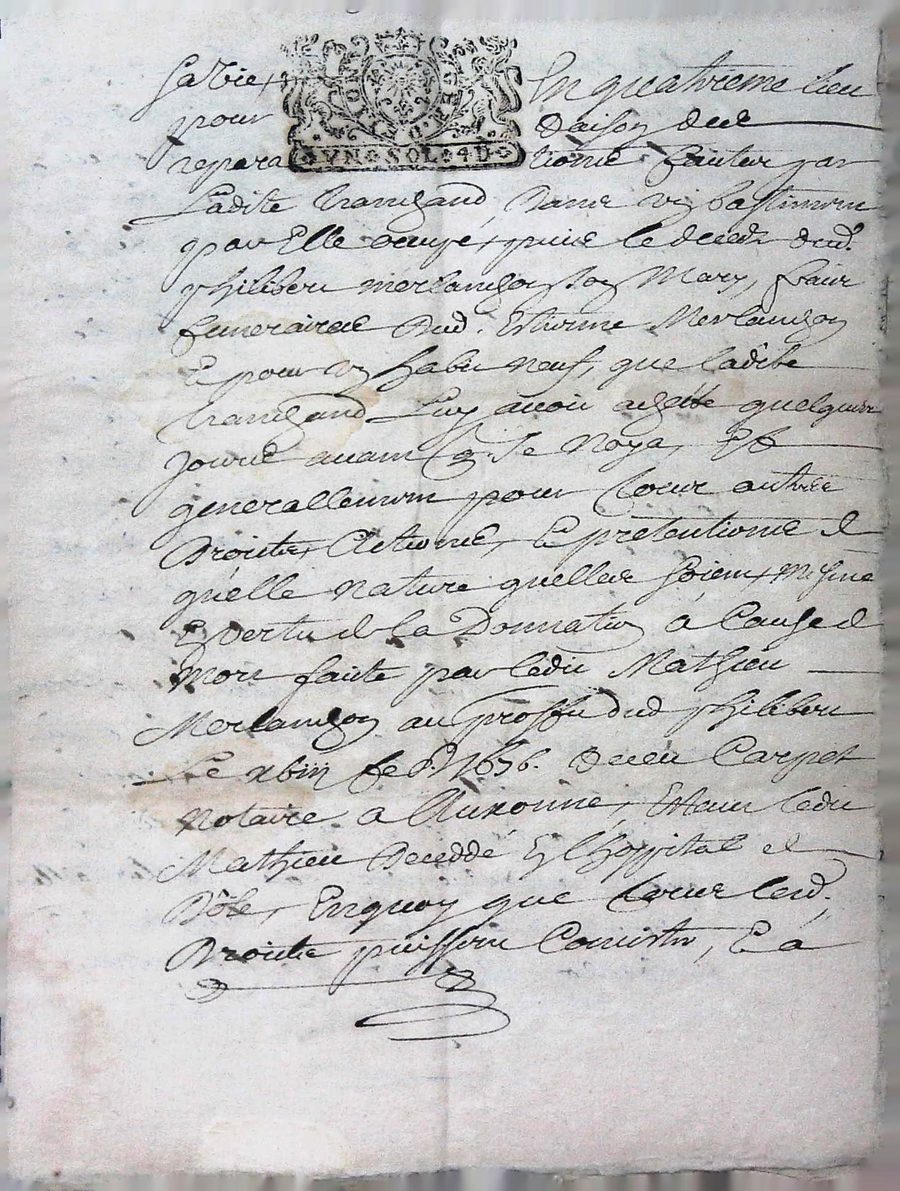 Sa vie, En quatrieme lieu
pour Raison des
repara tions faites par
Ladite tramsand, dans un bastiment
par Elle occupé, puis le deceds dud.
philibert merlanson son Mary, frais
funeraires dud. Estienne Merlanson
Et pour un habit neuf, que ladite
tramsand Luy avoit achetté quelques
Jours avant q. se noya, Et
generallement pour tous autres
Droits, Actions, Et pretentions de
quelle nature quelles soient, mesme
En vertu de la Donnation à Cause de
Mort faite par ledit Mathieu
Merlanson au proffit dud philibert
Le xbiii fe 1656. Receu Carpet
Notaire a Auxonne, Estant ledit
Mathieu Deceddé En l'hospital de
Dôle, En quoy que tous lesd.
Droits puissent Consister, Et a
VN SOL 4 D
GENER